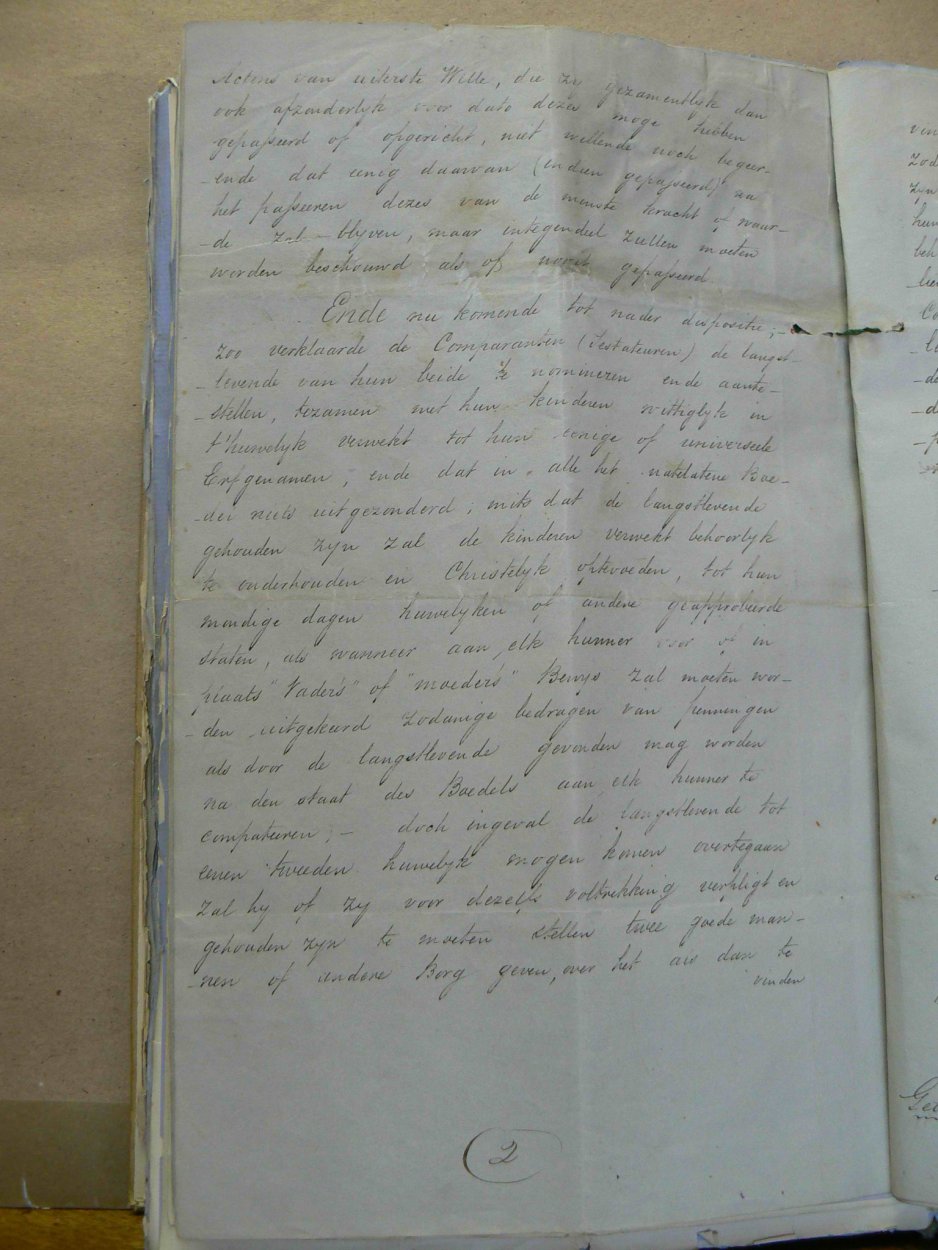 Actens van uiterste Wille, die zy gezamentlyk dan
ook afzonderlyk voor dato dezes moge hebben
gepasseerd of opgericht, niet willende noch begeer-
-ende dat eenig daarvan (indien gepasseerd) na
het passeeren dezes van de minste kracht of waar-
-de zal blyven, maar integendeel zullen moeten
worden beschouwd als of nooit gepasseerd
Ende nu komende tot nader dispositie,-
zoo verklaarde de Comparanten (testateuren) de langst-
-levende van hun beide te nomineren ende aante-
-stellen, tezamen met hun kinderen wettiglyk in
t'huwelyk verwekt tot hun eenige of universeele
Erfgenamen, ende dat in alle het natelatene Boe-
-del niets uitgezonderd; mits dat de langstlevende
gehouden zyn zal de kinderen verwekt behoorlyk
te onderhouden en Christelyk optevoeden, tot hun
mondige dagen huwelyken of andere geapprobeerde
staten, als wanneer aan elk hunner voor of in
plaats "Vaders" of "moeders" Bewys zal moeten wor-
- den uitgekeerd zodanige bedragen van penningen
als door de langstlevende gevonden mag worden
na den staat des Boedels aan elk hunner te
competeeren; - doch ingeval de langstlevende tot
eenen tweeden huwelyk mogen komen overtegaan
zal hy of zy voor dezelfs voltrekking verpligt en
gehouden zyn te moeten stellen twee goede man-
-nen of andere Borg geven, over het als dan te
vinden
2